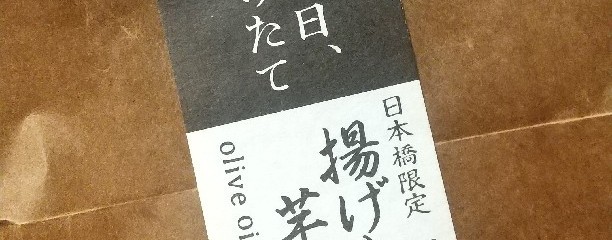 日、
たて
日本橋限定
揚げ
olive oi